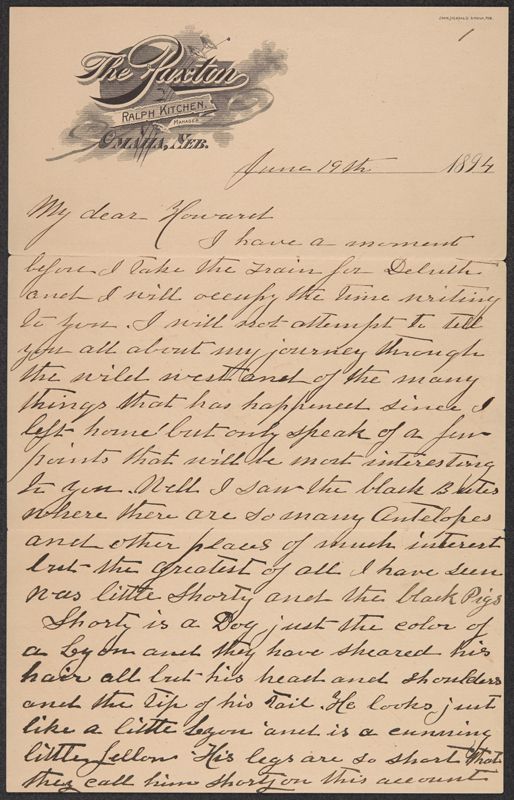 The Paxton
RALPH KITCHEN,
MANAGER
OMAHA, NEB.
1
June 19th 1894
My dear Howard
I have a moment
before I take the train for Deluth
and I will occupy the time writing
to you. I will not attempt to tell
you all about my journey through
the wild west and of the many
things that has happened since I
left home but only speak of a few
points that will be most interesting
to you. Well I saw the black Butes
where there are so many Antelopes
and other places of much interest
but the greatest of all I have seen
was little Shorty and the black Pigs
Shorty is a Dog just the color of
a Lyon and they have sheared his
hair all but his head and shoulders
and the tip of his tail. He looks just
like a little Lyon and is a cunning
little fellow His legs are so short that
they call him shorty on this account